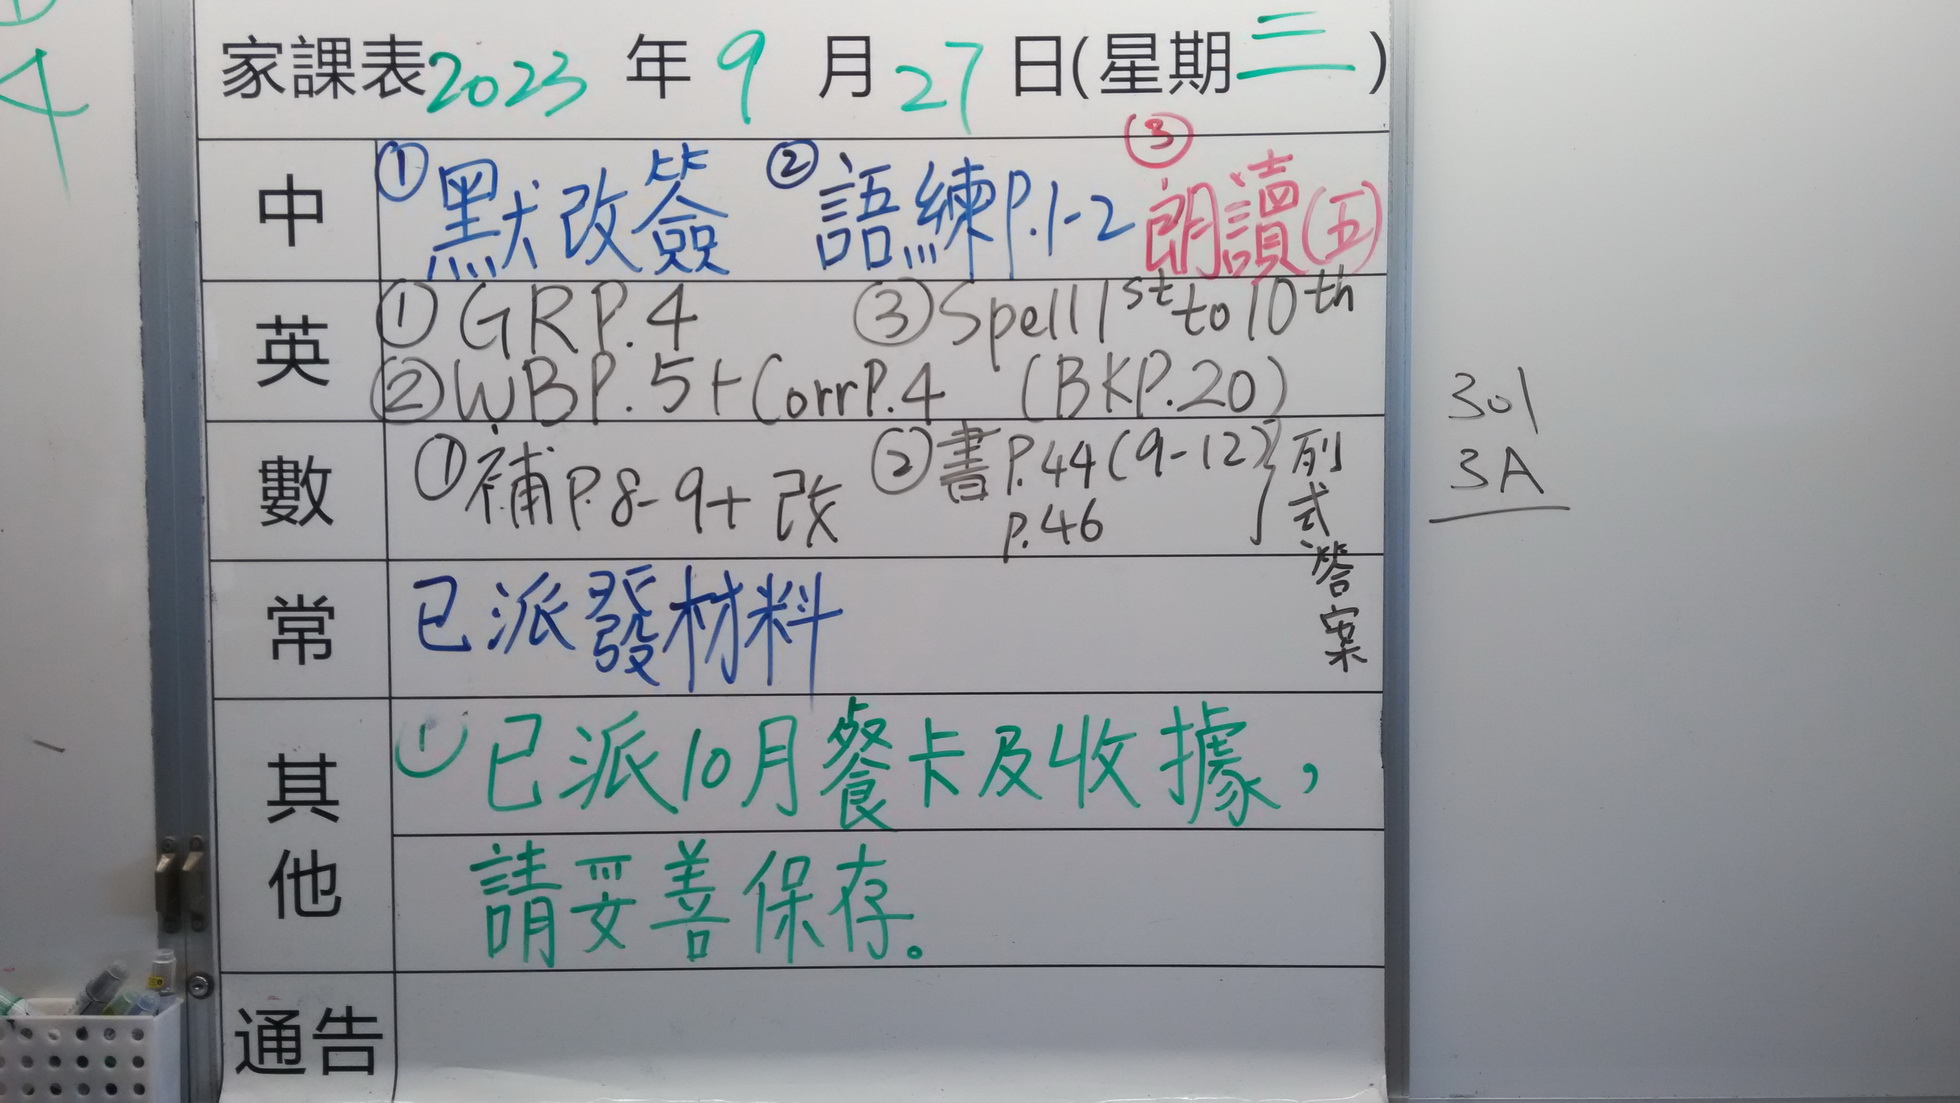 家課表2023年9月27日(星期三)
中 ①默改簽 ②語練P.1-2 ③朗讀(五)
英 ①GRP.4 ③Spell 1st to 10th
②WBP.5+CorrP.4 (BKP.20)
數 ①補P.8-9+改 ②書P.44(9-12) 列式答案
P.46
常 已派發材料
其他 ①已派10月餐卡及收據，
請妥善保存。
通告
301
3A
4